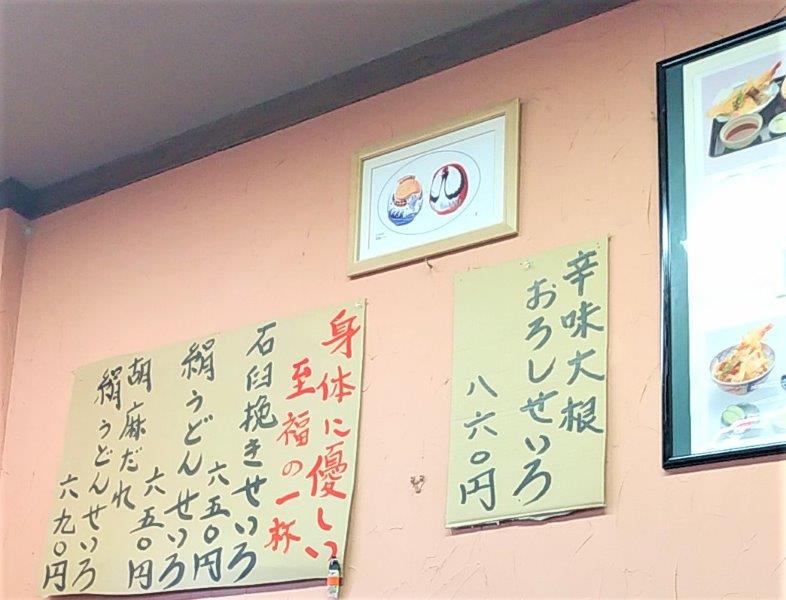 辛味大根
おろしせいろ
八六〇円
身体に優しい
至福の一杯
石臼挽きせいろ
六五〇円
絹うどんせいろ
六五〇円
胡麻だれ
絹うどんせいろ
六九〇円